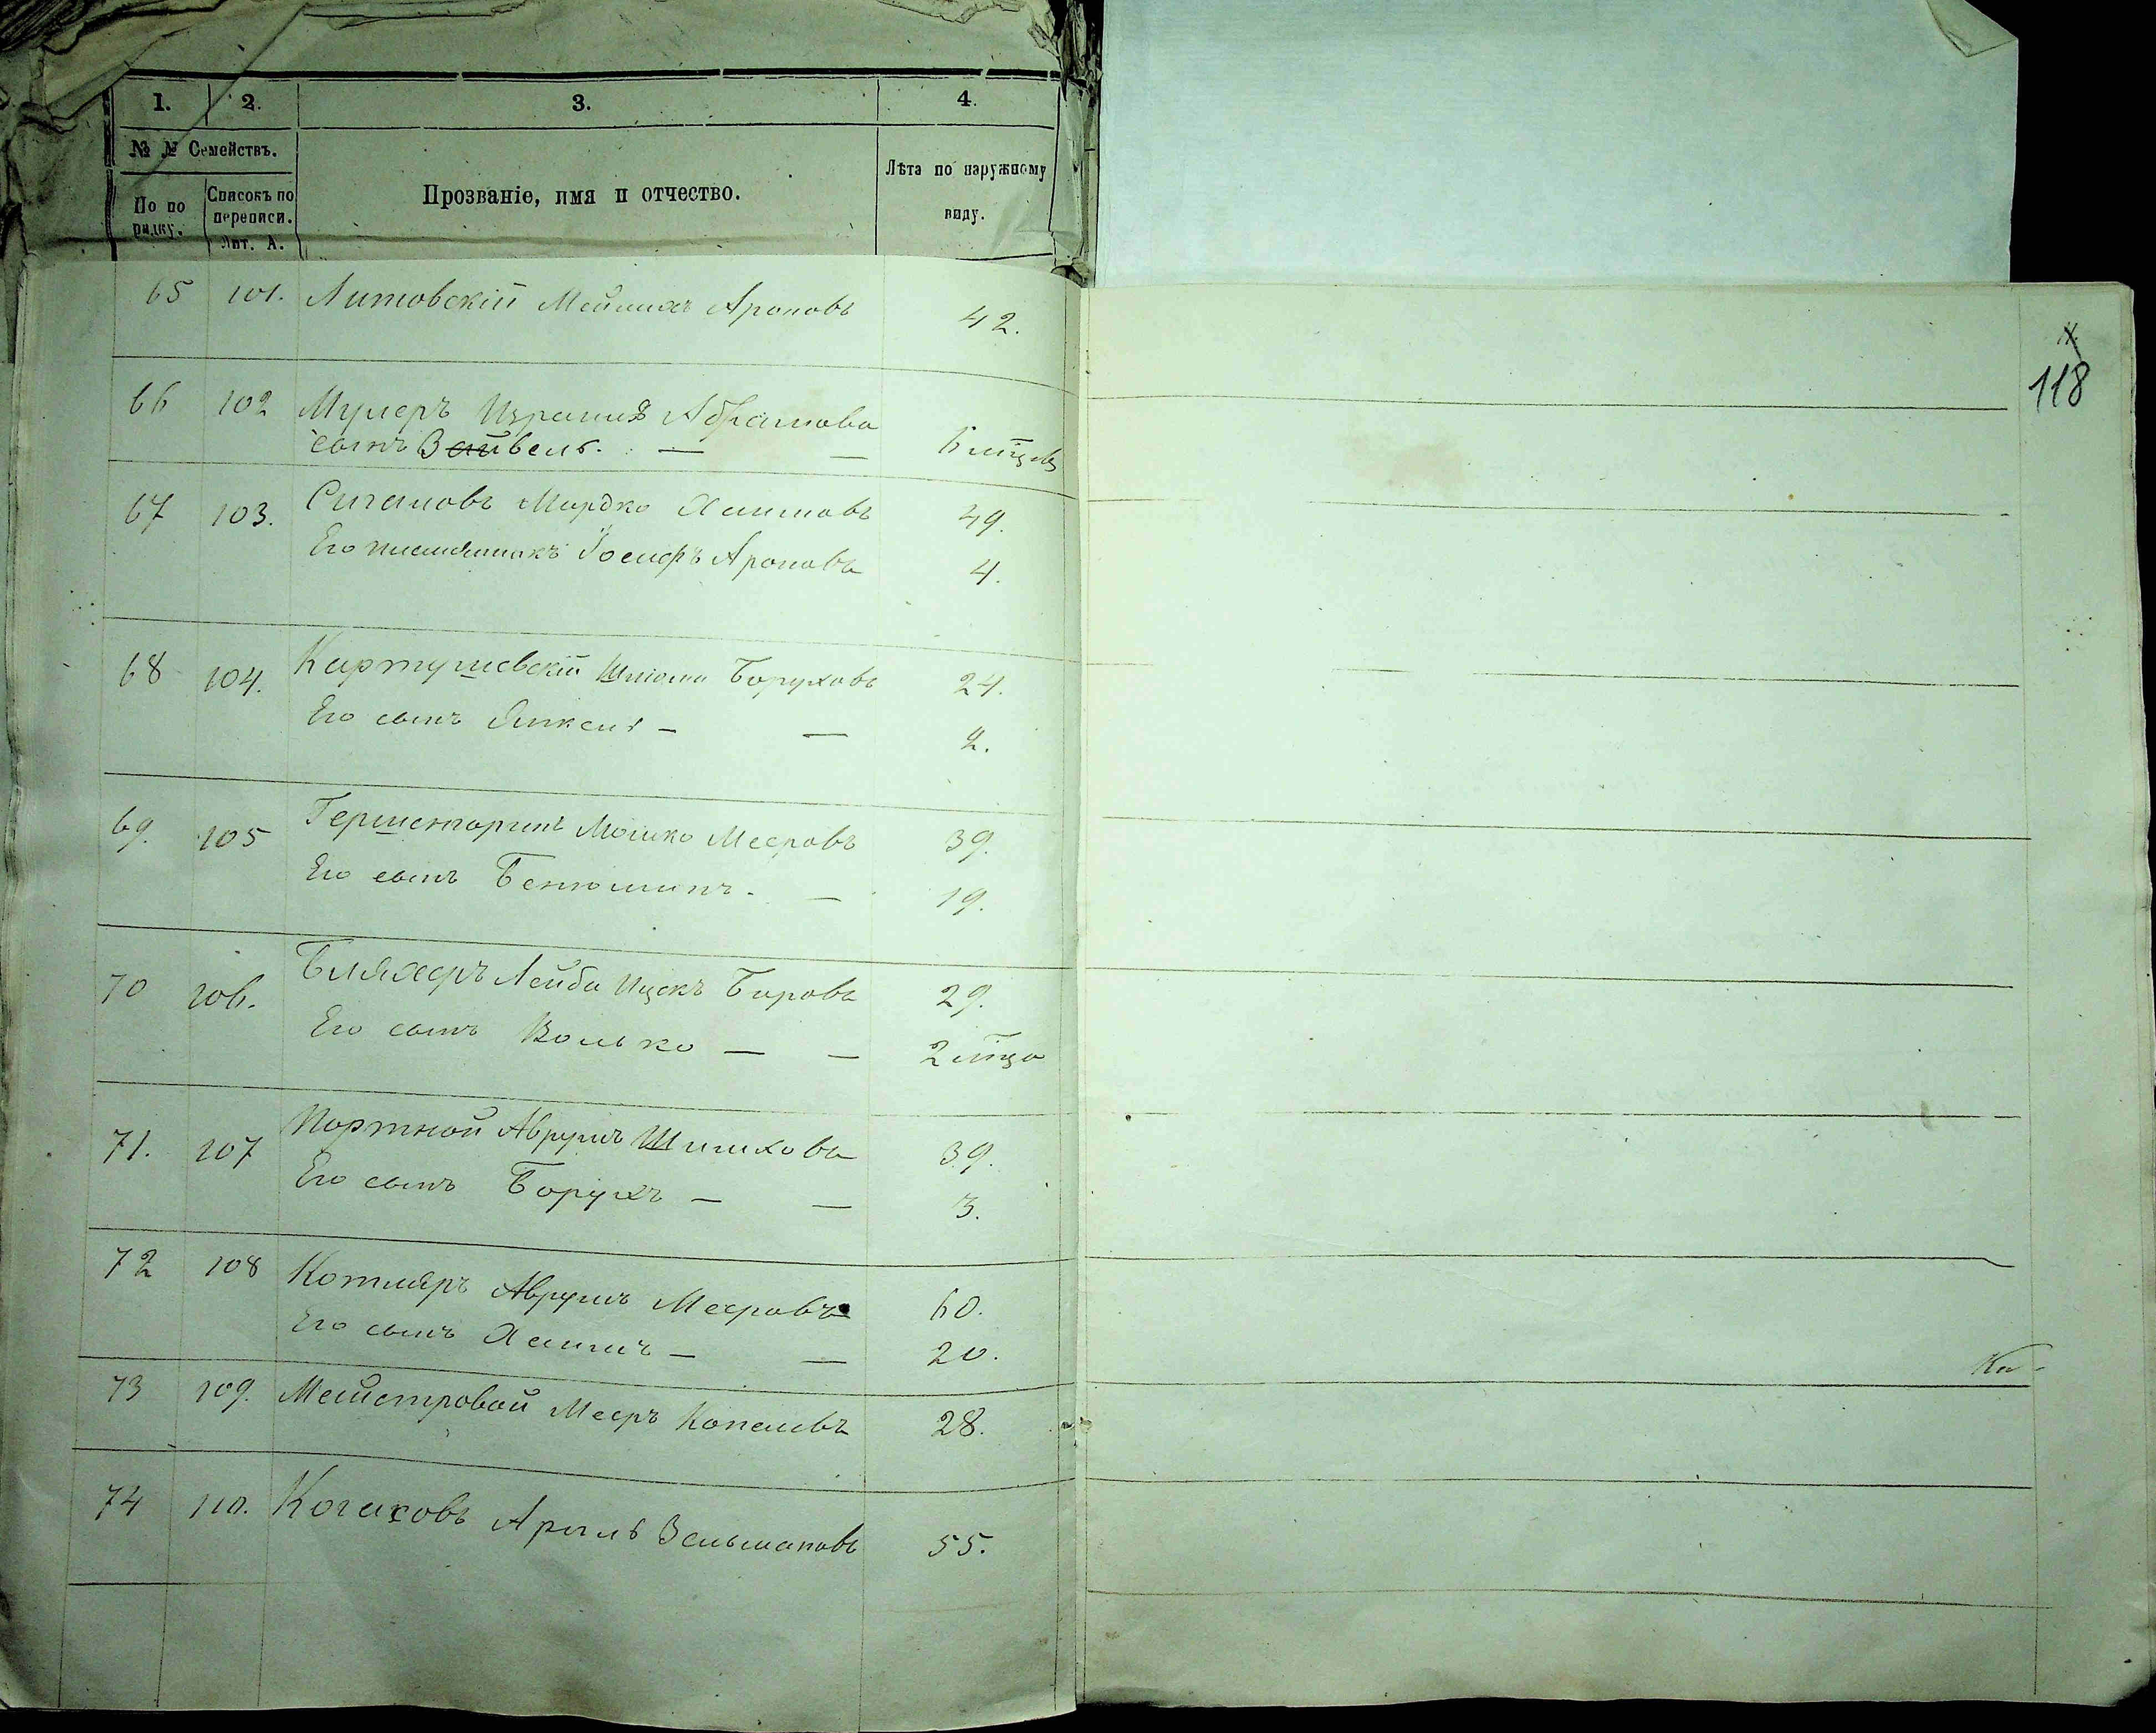 1. 2. 3. 4.
№ № Семействъ.
По по рядку.
Списокъ по переписи. Лит. А.
Прозваніе, имя и отчество.
Лѣта по наружному виду.
118
65 101. Литовскій Мейлихъ Ароновъ 42.
66 102 Мулеръ Израиля Абрамова
сынъ Вайвель. — — 6 мѣц
67 103. Сигаловъ Мордко Хаимовъ 49.
Его племянникъ Іосифъ Ароновъ 4.
68 104. Картушевскій Шліома Боруховъ 24.
Его сынъ Янкель — — 2.
69. 105 Герменторинъ Мошко Мееровъ 39.
Его сынъ Бенюминъ. — 19.
70 106. Бляхеръ Лейба Ицекъ Беровъ 29.
Его сынъ Волько — — 2 мѣца
71. 107 Портной Аврумъ Шмиховъ 39.
Его сынъ Борухъ — — 3.
72 108 Котляръ Аврумъ Мееровъ 60.
Его сынъ Хаимъ — — 20.
Ко
73 109. Мейстровой Мееръ Копелевъ 28.
74 110. Когаковъ Арыль Зельмановъ 55.